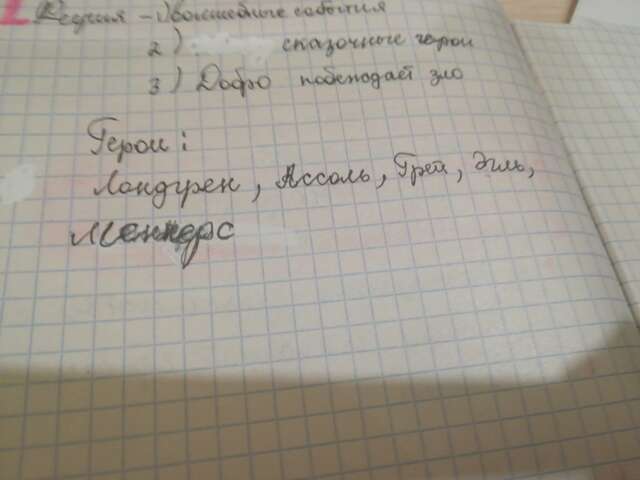 Феерия – 1) волшебные события
2) сказочные герои
3) Добро побеждает зло
Герои:
Лонгрен, Ассоль, Грей, Эгль,
Меннерс